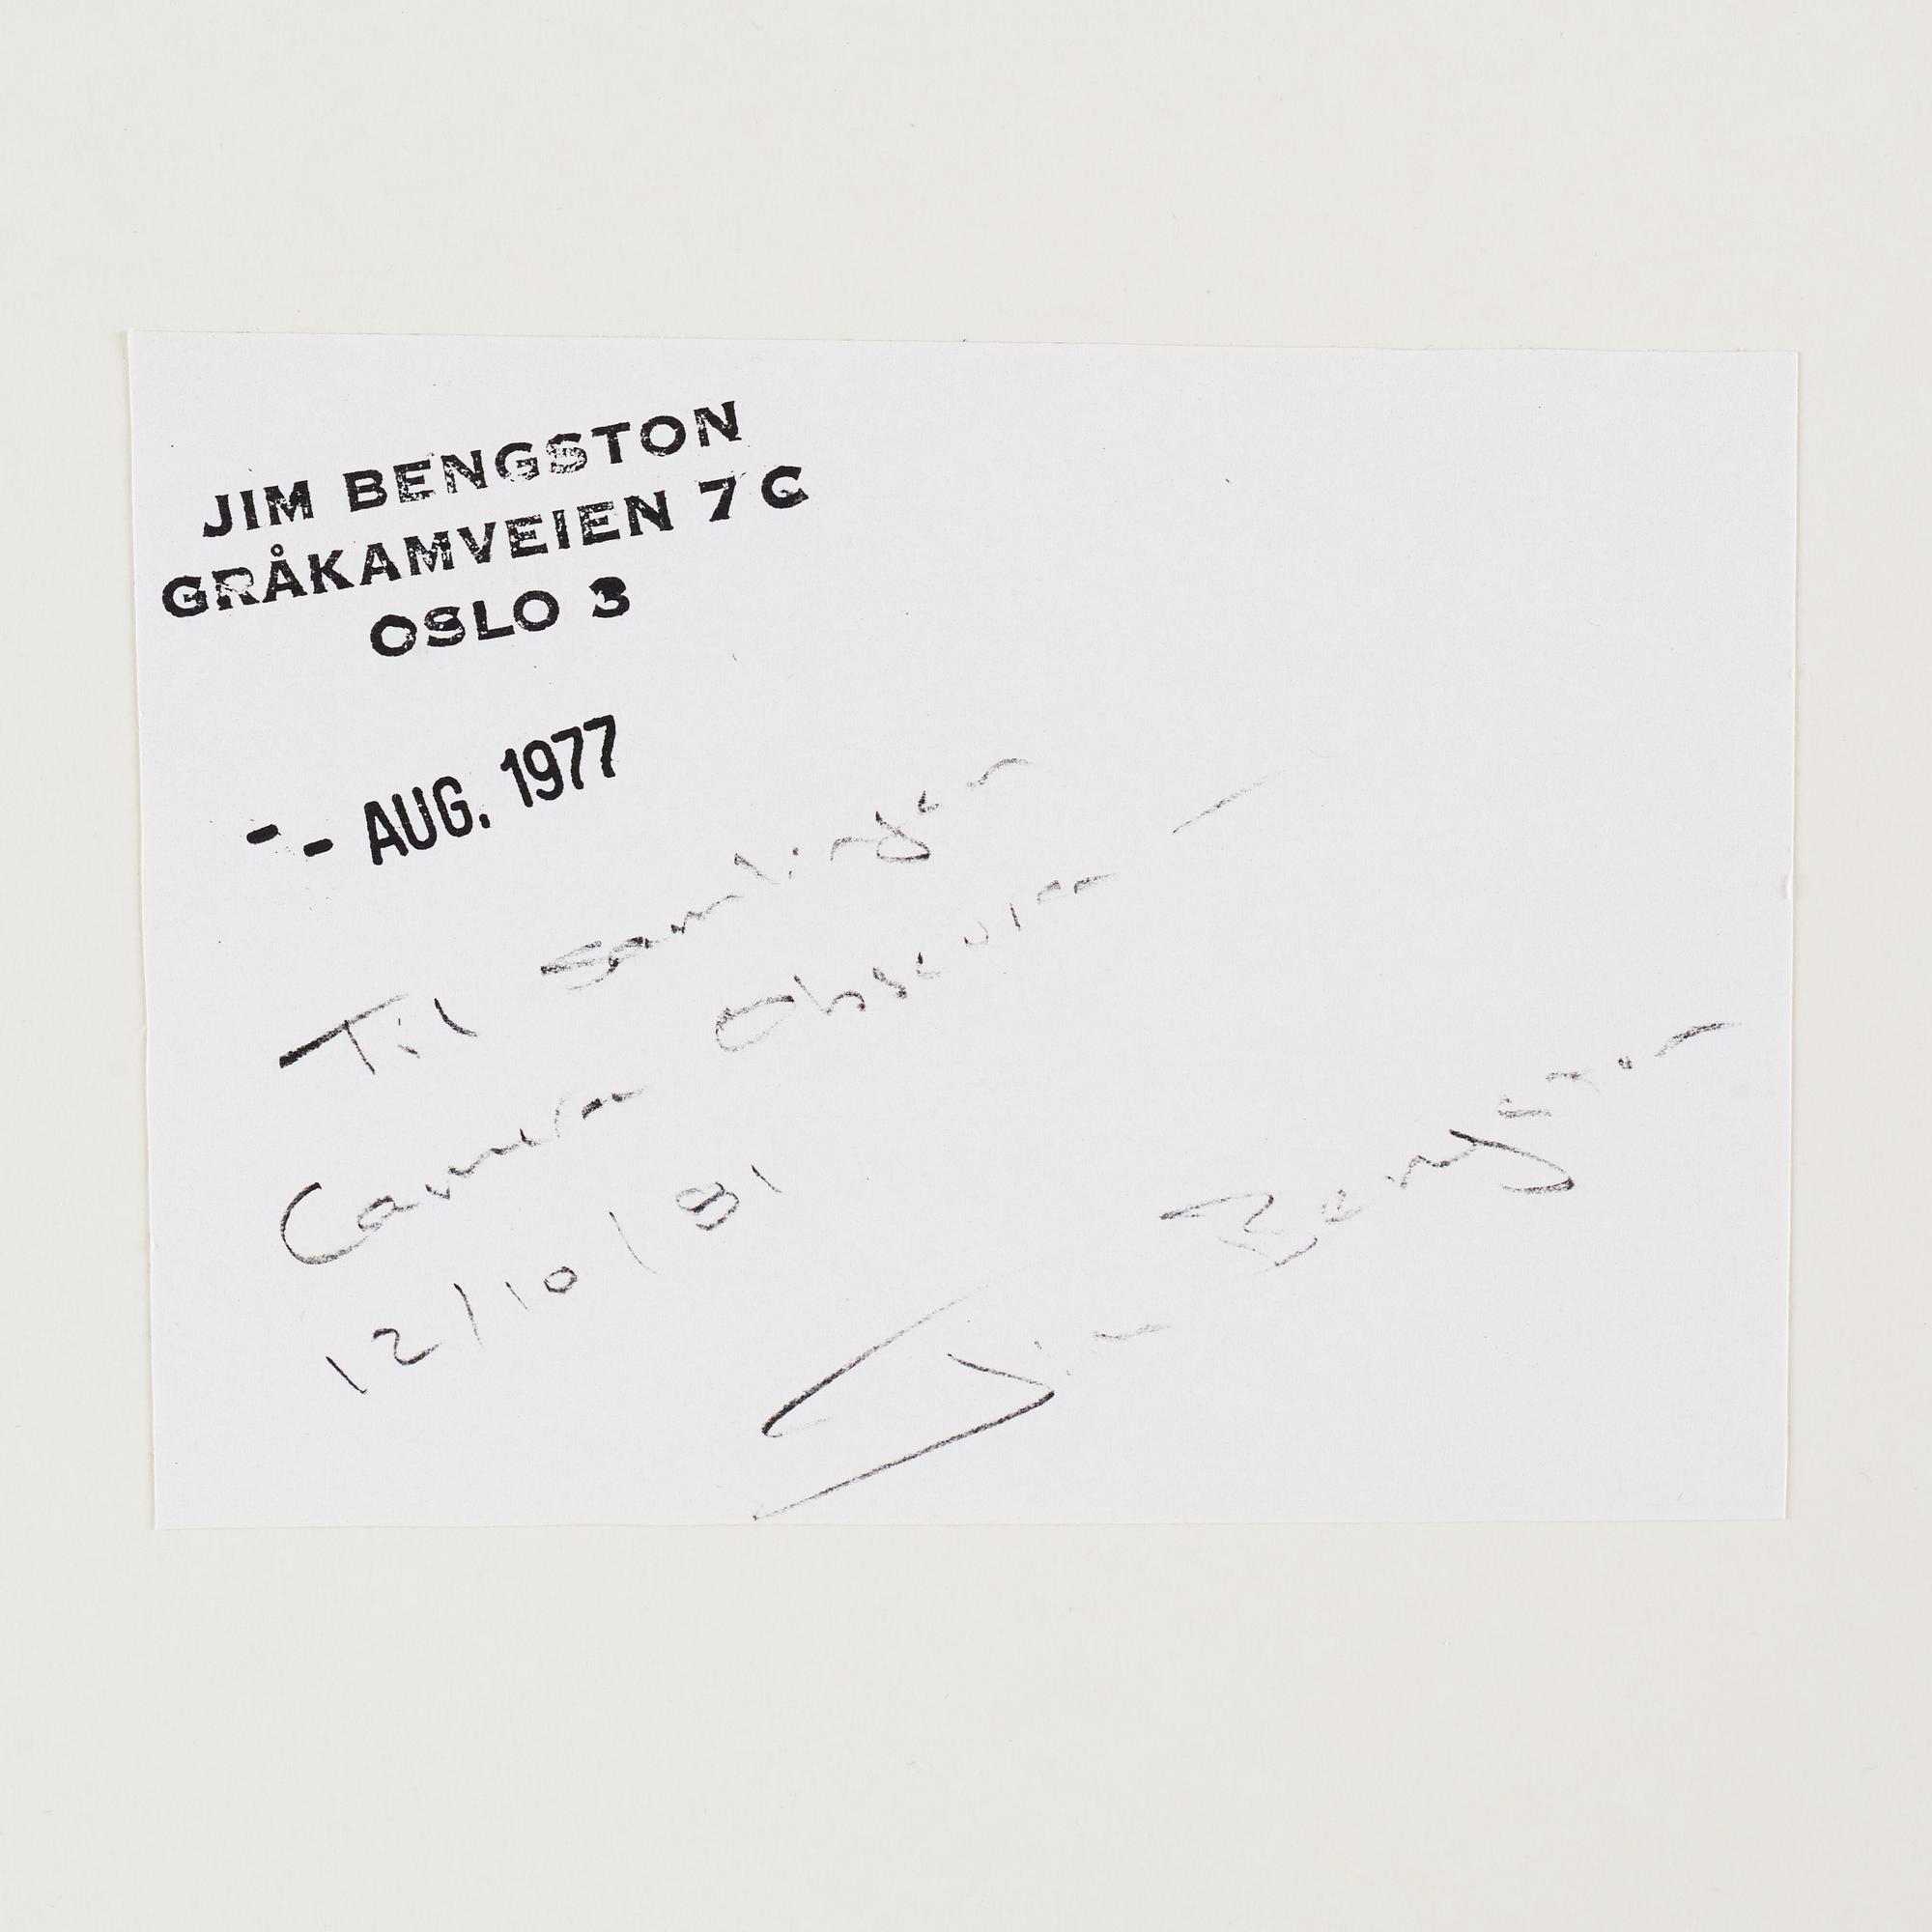 JIM BENGSTON
GRÅKAMVEIEN 7 C
OSLO 3
-- AUG. 1977
Til samlingen
Camera Obscura —
12/10/81
Jim Bengston